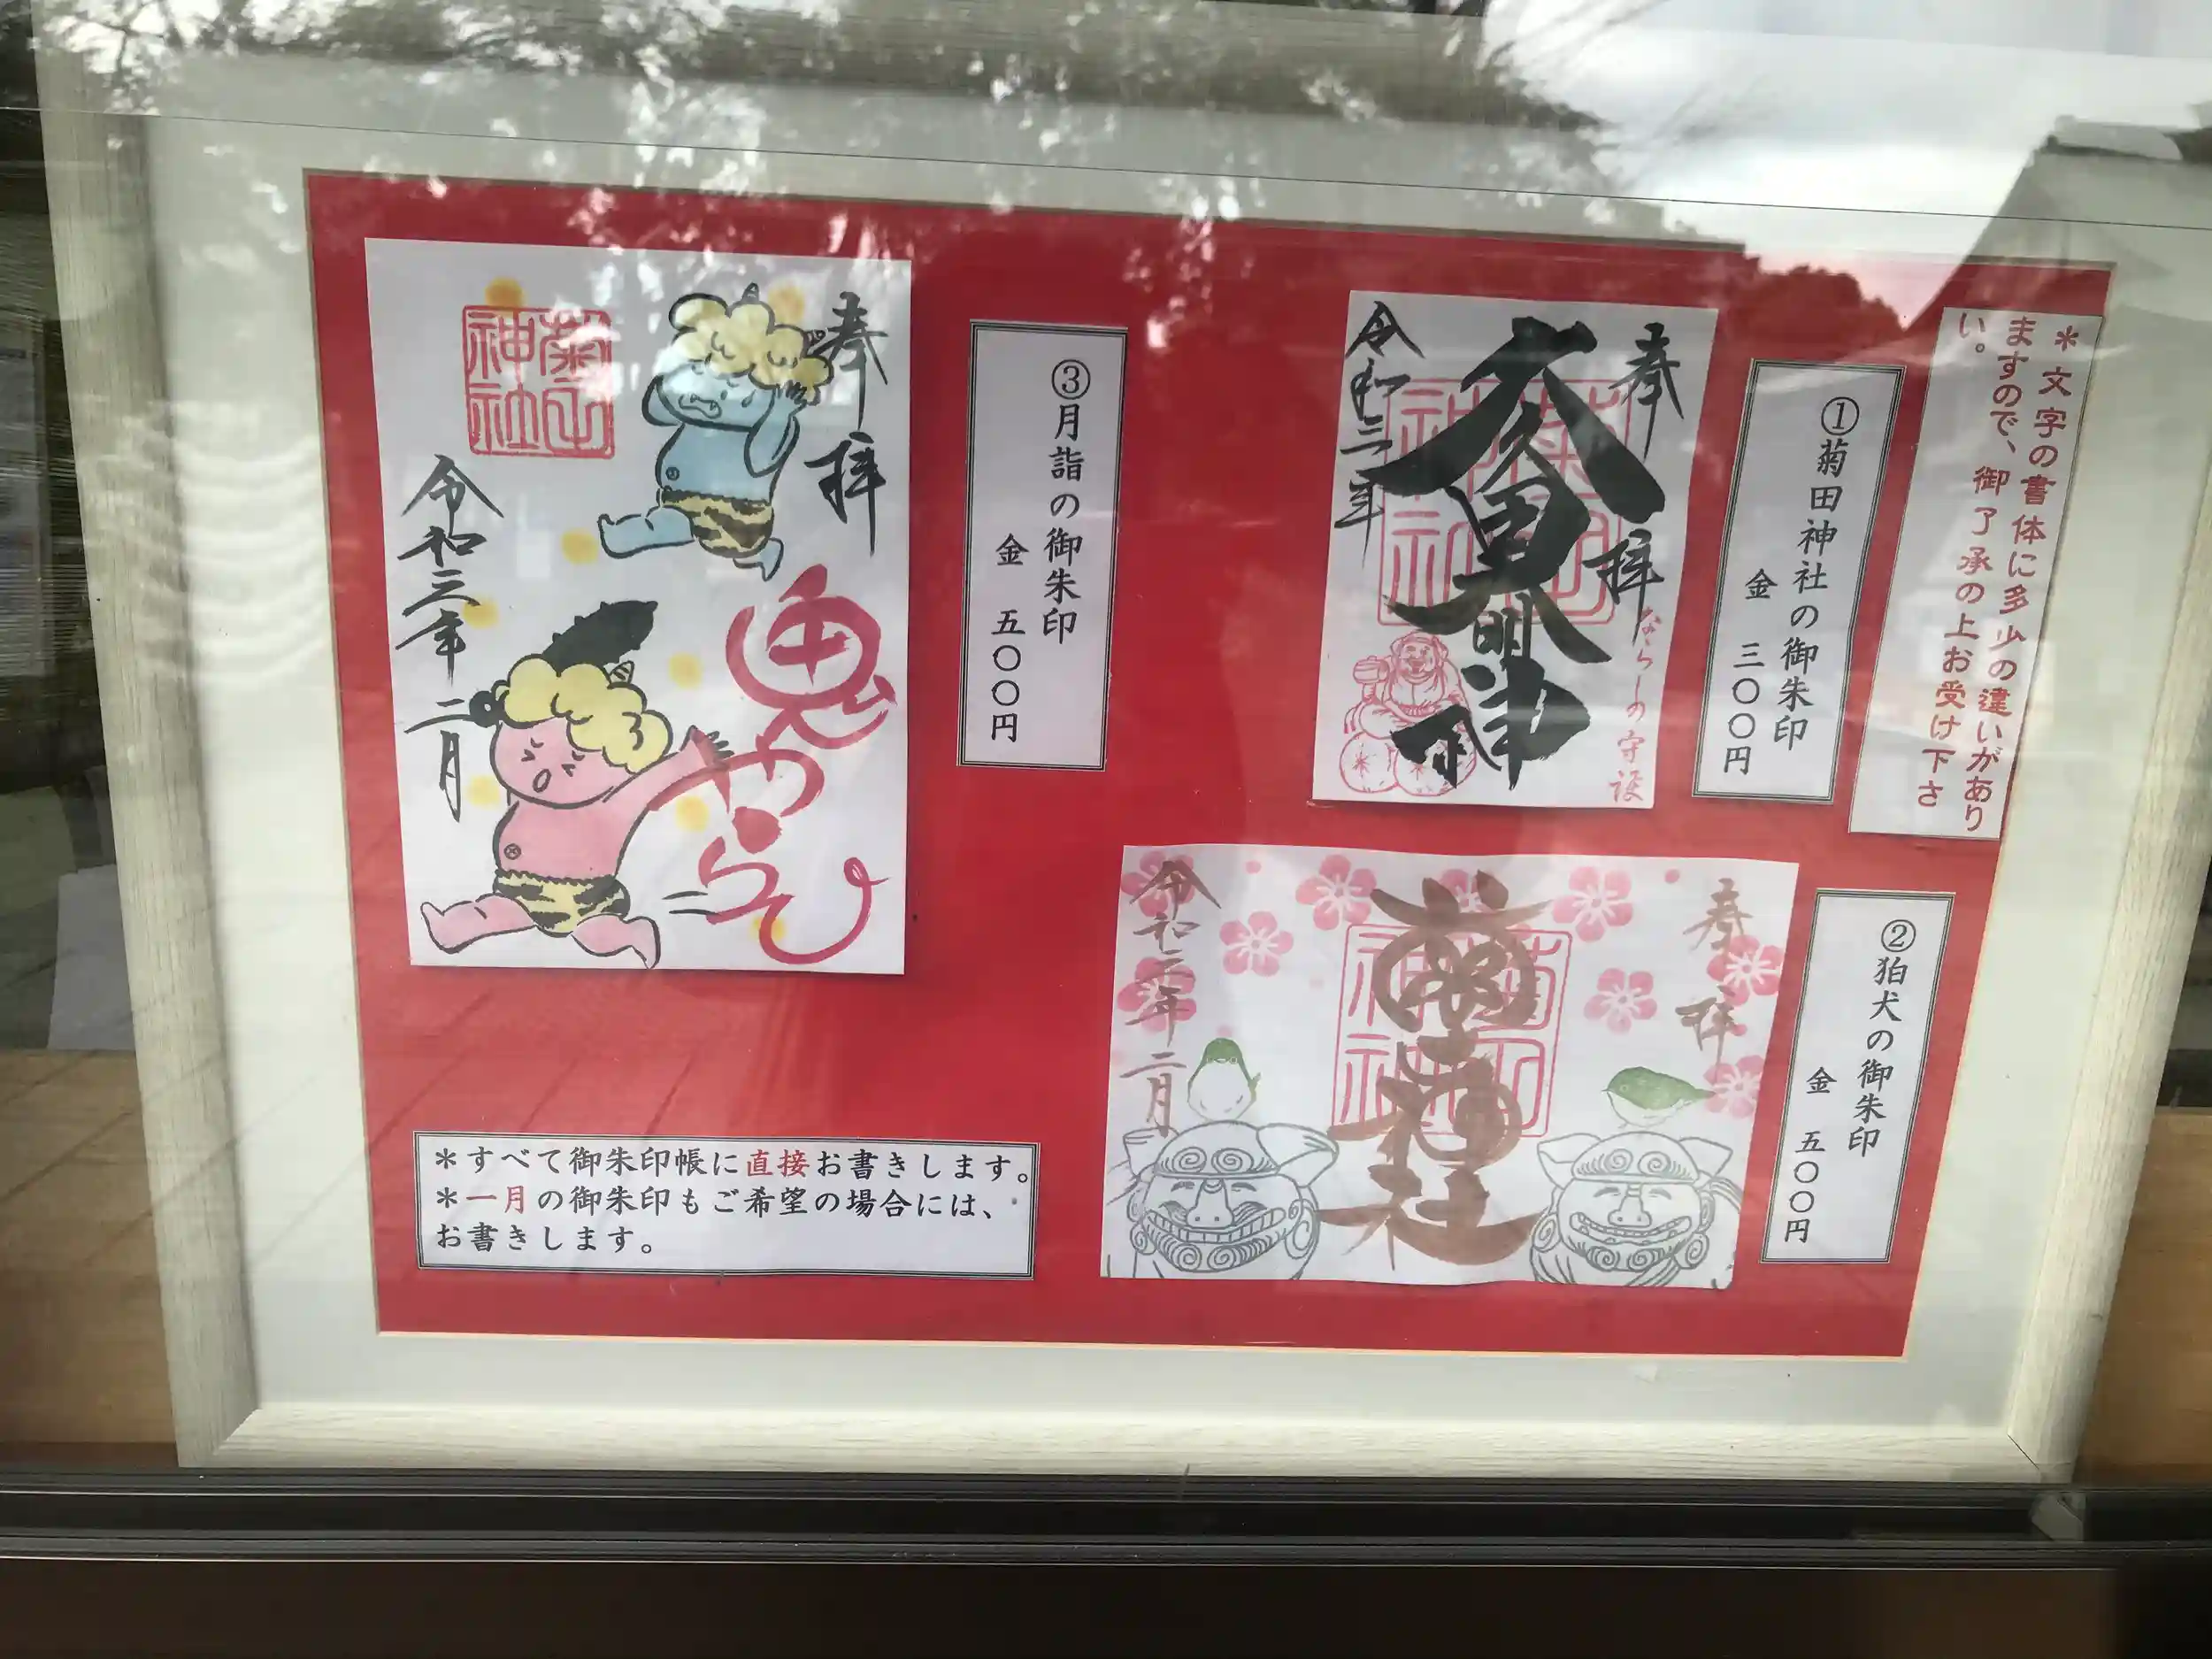 *文字の書体に多少の違いがあり
ますので、御了承の上お受け下さ
い。
①菊田神社の御朱印
金 三〇〇円
奉拝
ならしの守護
久々田大明神
菊田神社
令和三年
②狛犬の御朱印
金 五〇〇円
奉拝
菊田神社
菊田神社
令和三年二月
③月詣の御朱印
金 五〇〇円
奉拝
鬼やらひ
菊田神社
令和三年 二月
*すべて御朱印帳に直接お書きします。
*一月の御朱印もご希望の場合には、
お書きします。